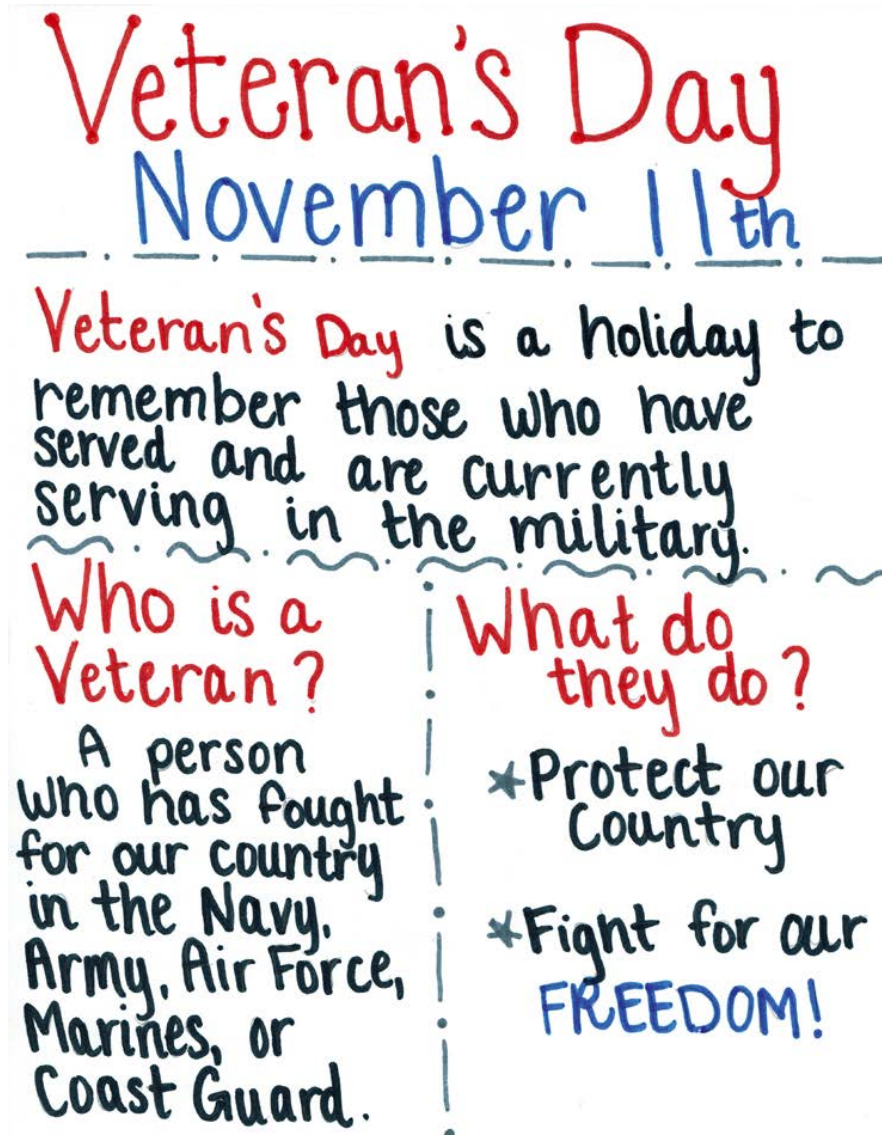 Veteran's Day
November 11th
Veteran's Day is a holiday to
remember those who have
served and are currently
serving in the military.
Who is a
Veteran?
A person
who has fought
for our country
in the Navy,
Army, Air Force,
Marines, or
Coast Guard.
What do
they do?
*Protect our
Country
*Fight for our
FREEDOM!